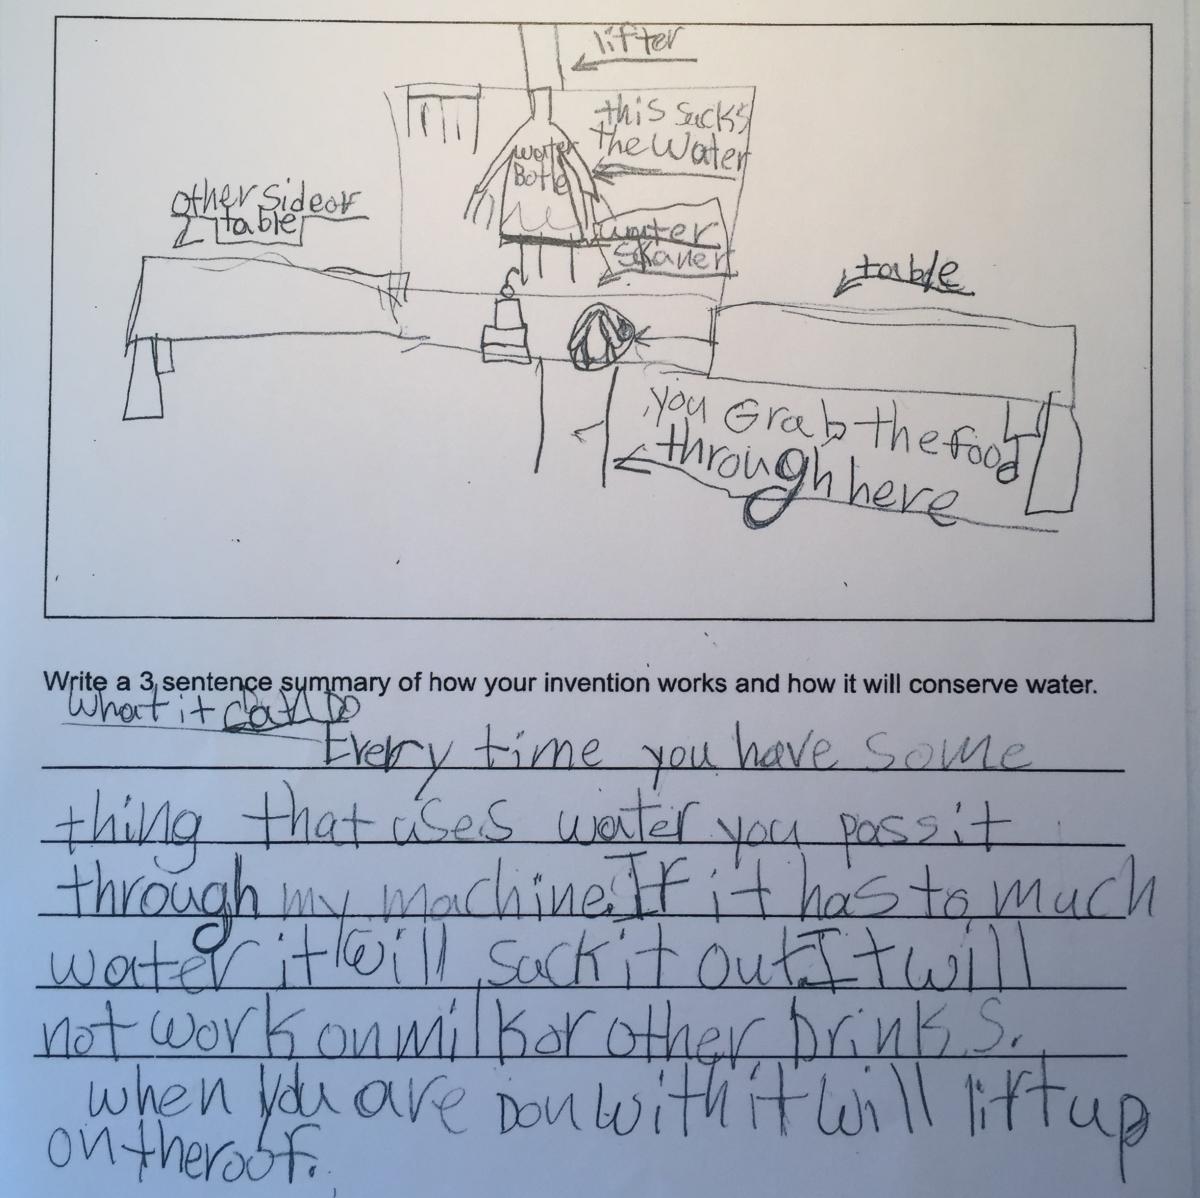 lifter
this sucks
the water
water
Botle
other side of
table
water
skaner
table
you Grab the food
through here
Write a 3 sentence summary of how your invention works and how it will conserve water.
What it can Do
Every time you have some
thing that uses water you pass it
through my machine. If it has to much
water it will suck it out. It will
not work on milk or other Drinks.
when you are Don with it will lift up
on the roof.